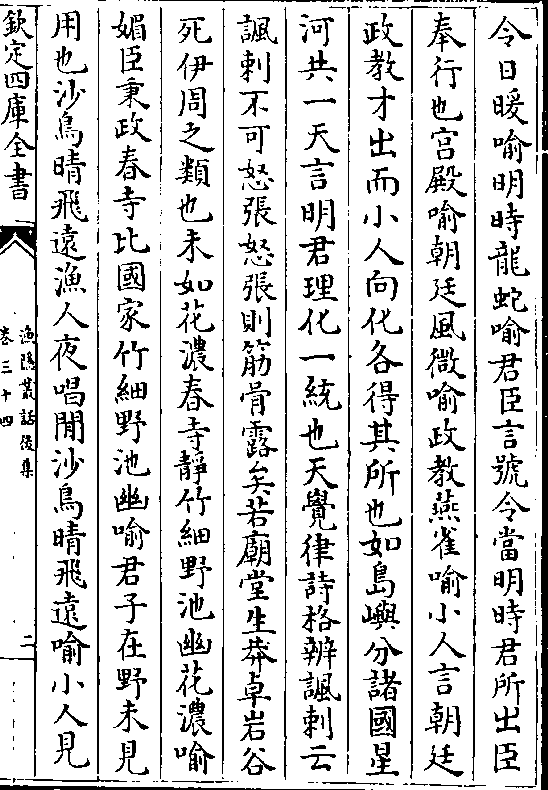 令日暖喻明時龍蛇喻君臣言號令當明時君所出臣
奉行也宫殿喻朝廷風微喻政教燕雀喻小人言朝廷
政教才出而小人向化各得其所也如島嶼分諸國星
河共一天言明君理化一統也天覺律詩格辨諷刺云
諷刺不可怒張怒張則筋骨露矣若廟堂生莽卓岩谷
死伊周之類也未如花濃春寺靜竹細野池幽花濃喻
媚臣秉政春寺比國家竹細野池幽喻君子在野未見
用也沙鳥晴飛遠漁人夜唱閒沙鳥晴飛遠喻小人見
欽定四庫全書
漁隱叢話後集
卷三十四
二